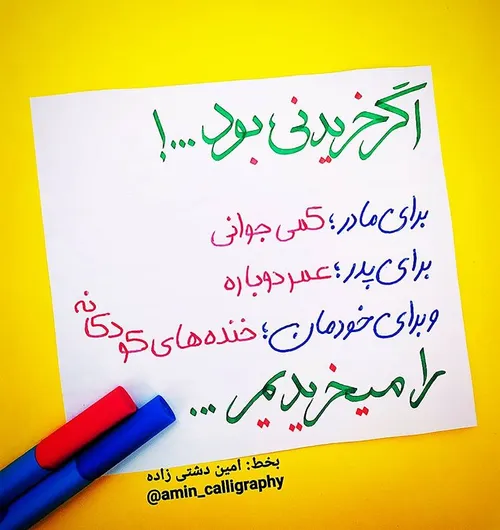 اگر خریدنی بود...!
برای مادر؛ کمی جوانی
برای پدر؛ عمر دوباره
و برای خودمان؛ خنده‌های کودکانه
را میخریدیم ...
بخط: امین دشتی زاده
@amin_calligraphy